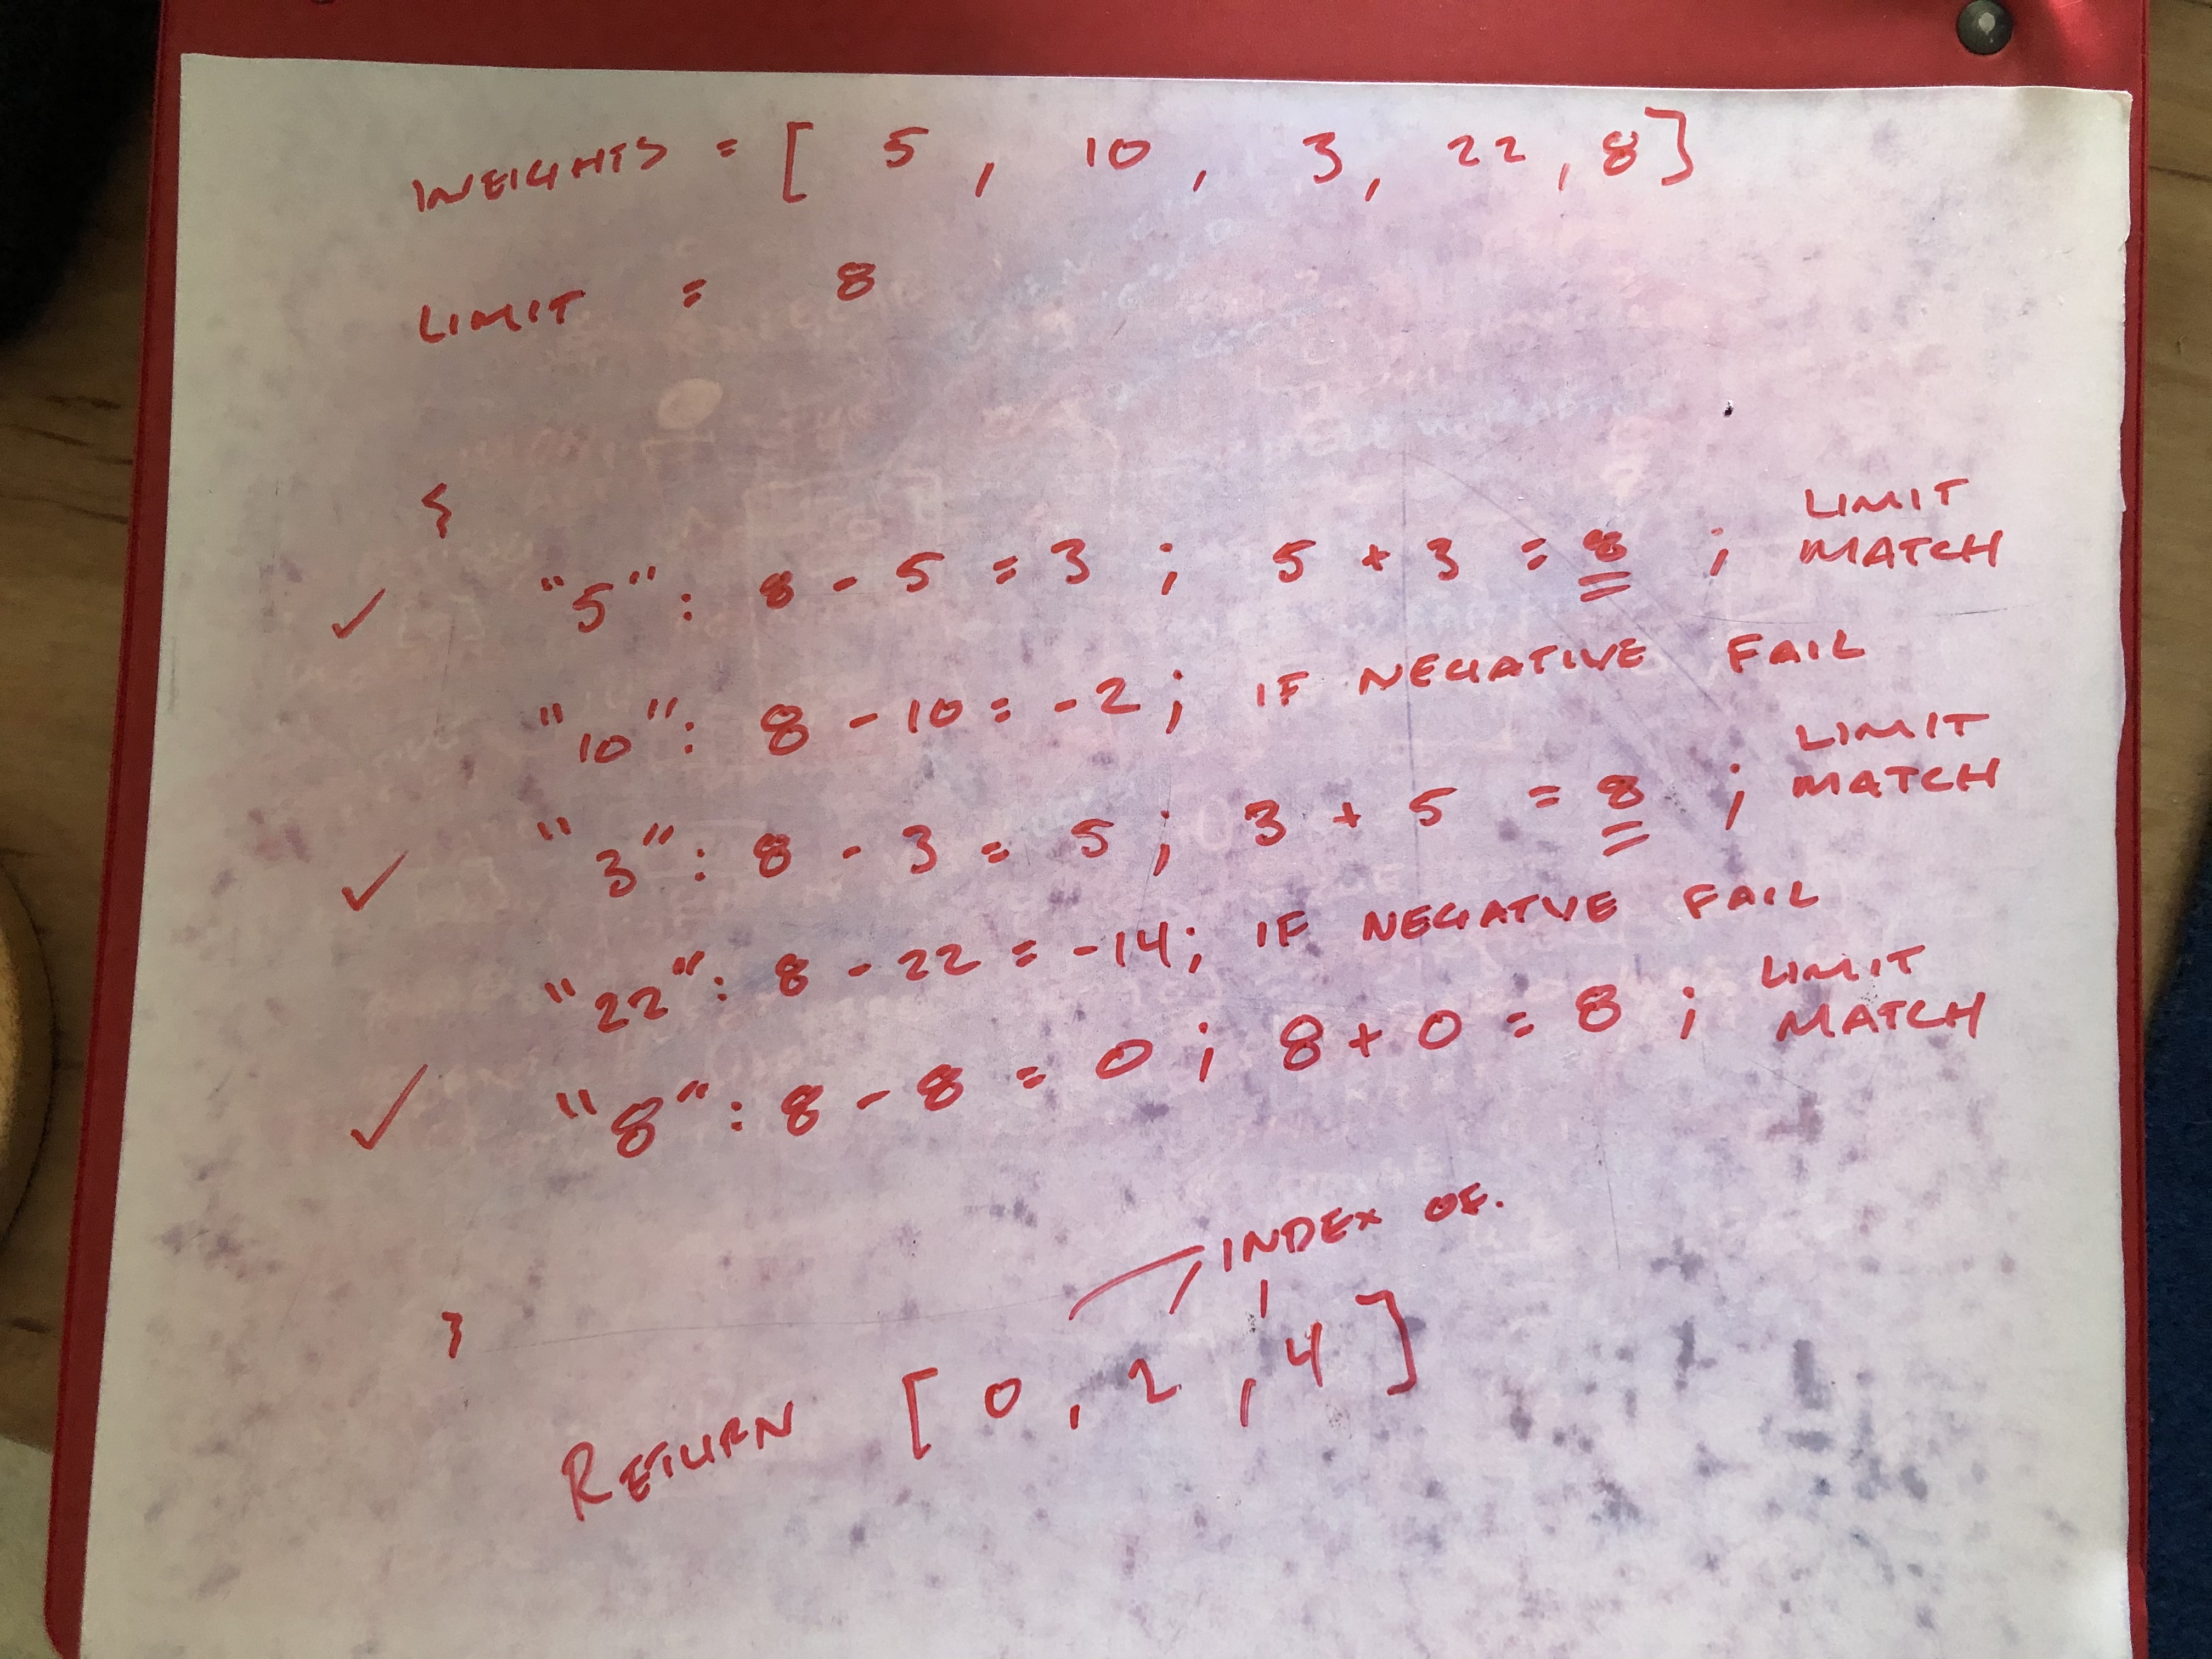 WEIGHTS = [ 5 , 10 , 3 , 22 , 8 ]
LIMIT = 8
{
✓ "5" : 8 - 5 = 3 ; 5 + 3 = 8 ; LIMIT MATCH
"10" : 8 - 10 = -2 ; IF NEGATIVE FAIL
✓ "3" : 8 - 3 = 5 ; 3 + 5 = 8 ; LIMIT MATCH
"22" : 8 - 22 = -14 ; IF NEGATVE FAIL
✓ "8" : 8 - 8 = 0 ; 8 + 0 = 8 ; LIMIT MATCH
INDEX OF.
}
RETURN [ 0 , 2 , 4 ]